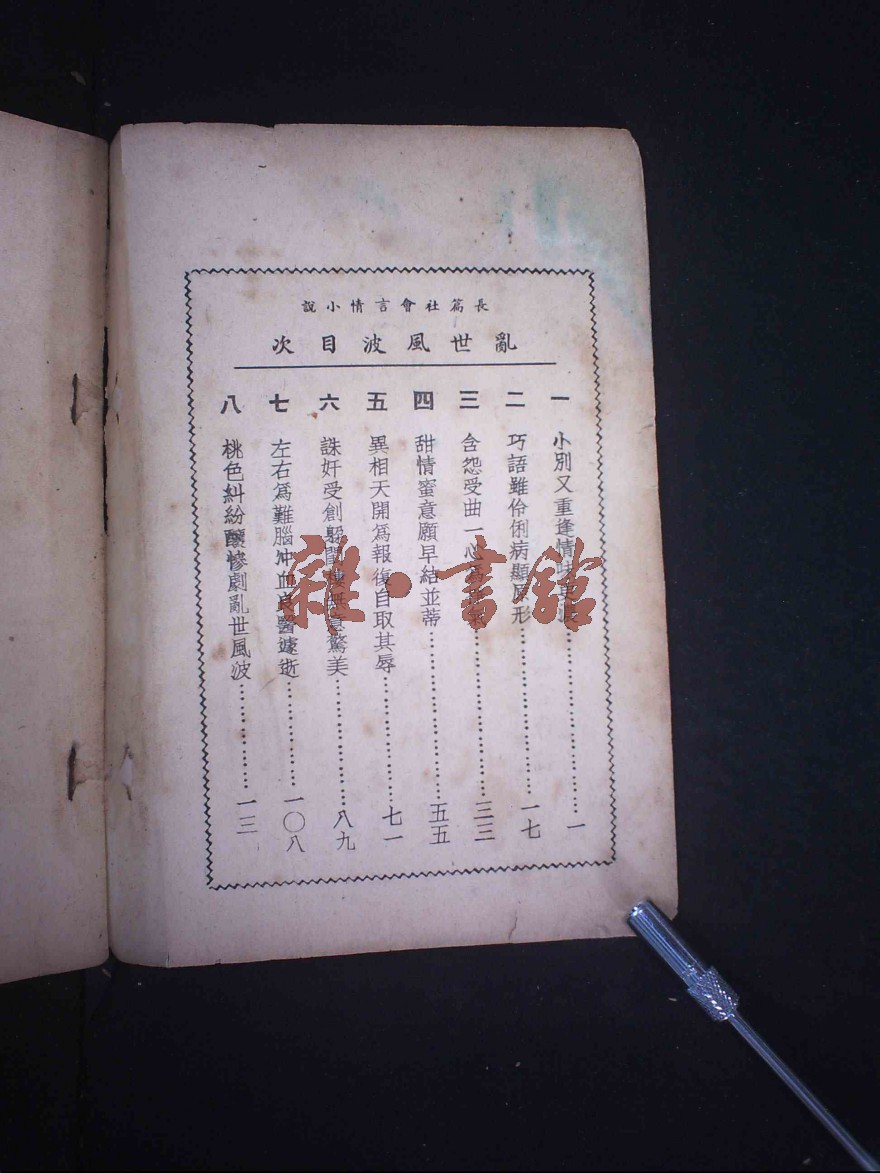 長篇社會言情小說
亂世風波目次
一 小別又重逢情……一
二 巧語雖伶俐病顯原形……一七
三 含怨受曲一心……三三
四 甜情蜜意願早結並蒂……五五
五 異相天開為報復自取其辱……七一
六 誅奸受創躲閣樓無意驚美……八九
七 左右為難腦冲血良醫遽逝……一〇八
八 桃色糾紛釀慘劇亂世風波……一三
雜·書館